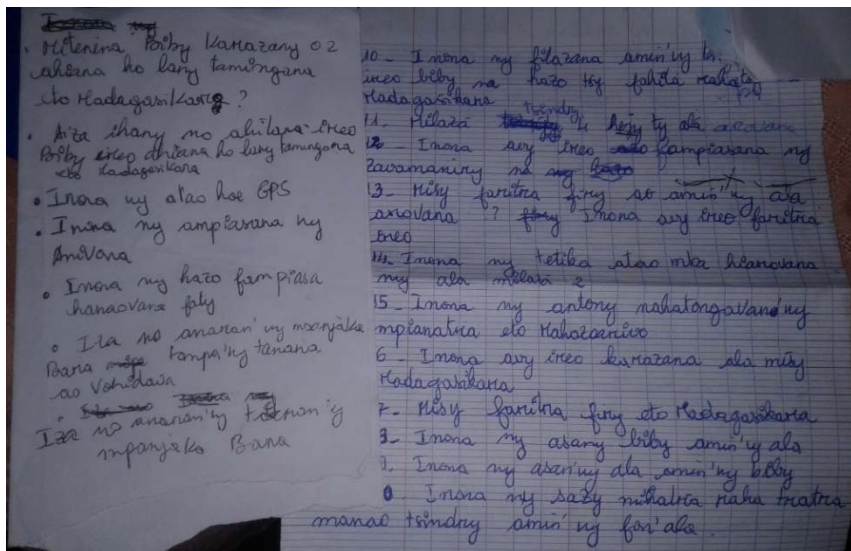 . Mitenina Biby Karazany 02
ahiana ho lany tamingana
eto Madagasikara ?
. Aiza ihany no ahitana ireo
Biby ireo ahiana ho lany tamingana
eto Madagasikara
. Inona ny atao hoe GPS
. Inona ny ampiasana ny
Anivona
. Inona ny hazo fampiasa
hanaovana faty
. Iza no anaran'ny mpanjaka
Bara tompa'ny tanana
ao Vohidava
Iza no anaran'ny
mpanjaka Bara
10_ Inona ny filazana amin'ny
ireo biby na hazo tsy fahita
Madagasikara
11_ Milaza tsindry 4 ty ala arovana
12_ Inona avy ireo fampiasana ny
zavamaniry
13_ Misy faritra firy ao amin'ny ala
arovana ? Inona avy ireo faritra
ireo
14. Inona ny tetika atao mba hiarovana
ny ala
15_ Inona ny antony nahatongavan'ny
mpianatra eto Mahazoarivo
6_ Inona avy ireo karazana ala misy
Madagasikara
7_ Misy faritra firy eto Madagasikara
8_ Inona ny asany biby amin'ny ala
9. Inona ny asan'ny ala amin'ny biby
0_ Inona ny sazy mihatra raha tratra
manao tsindry amin'ny fon'ala.